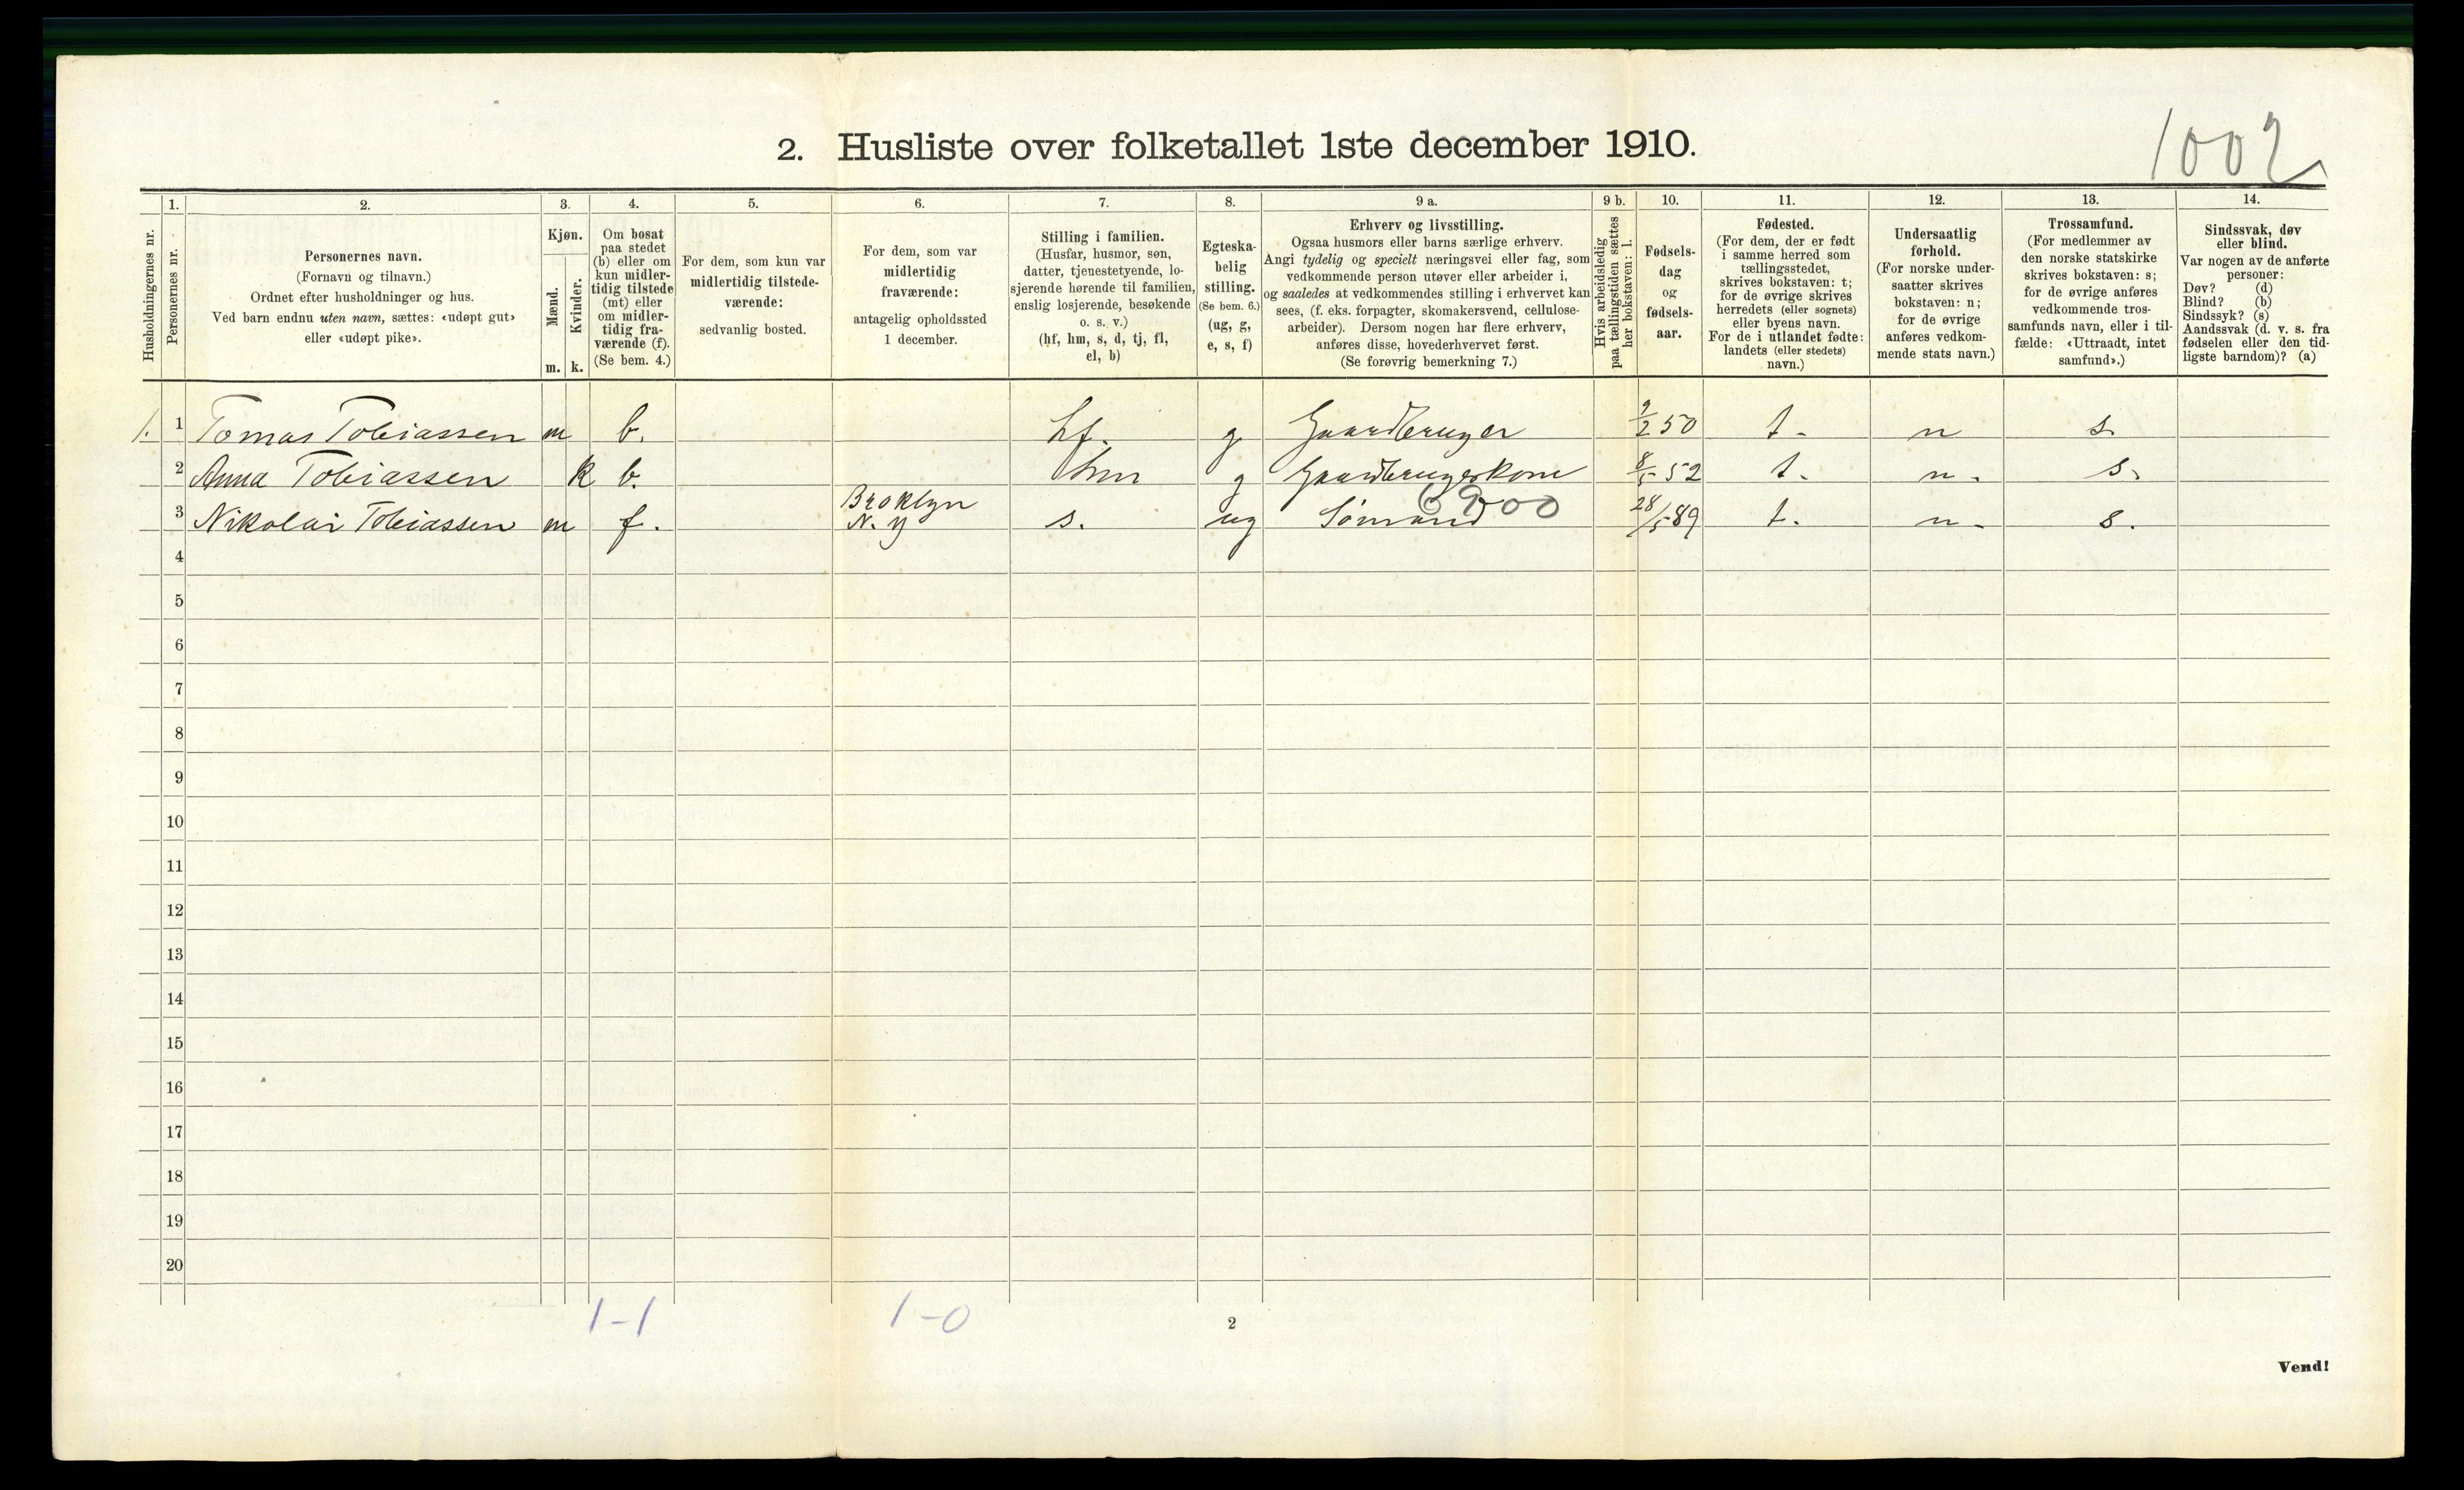 1002
2. Husliste over folketallet 1ste december 1910.
Husholdningernes nr.
1.
Personernes nr.
2.
Personernes navn.
(Fornavn og tilnavn.)
Ordnet efter husholdninger og hus.
Ved barn endnu uten navn, sættes: «udøpt gut»
eller «udøpt pike».
3.
Kjøn.
Mænd.
Kvinder.
m. k.
4.
Om bosat
paa stedet
(b) eller om
kun midler-
tidig tilstede
(mt) eller
om midler-
tidig fra-
værende (f).
(Se bem. 4.)
5.
For dem, som kun var
midlertidig tilstede-
værende:
sedvanlig bosted.
6.
For dem, som var
midlertidig
fraværende:
antagelig opholdssted
1 december.
7.
Stilling i familien.
(Husfar, husmor, søn,
datter, tjenestetyende, lo-
sjerende hørende til familien,
enslig losjerende, besøkende
o. s. v.)
(hf, hm, s, d, tj, fl,
el, b)
8.
Egteska-
belig
stilling.
(Se bem. 6.)
(ug, g,
e, s, f)
9 a.
Erhverv og livsstilling.
Ogsaa husmors eller barns særlige erhverv.
Angi tydelig og specielt næringsvei eller fag, som
vedkommende person utøver eller arbeider i,
og saaledes at vedkommendes stilling i erhvervet kan
sees, (f. eks. forpagter, skomakersvend, cellulose-
arbeider). Dersom nogen har flere erhverv,
anføres disse, hovederhvervet først.
(Se forøvrig bemerkning 7.)
9 b.
Hvis arbeidsledig
paa tællingstiden sættes
her bokstaven: l.
10.
Fødsels-
dag
og
fødsels-
aar.
11.
Fødested.
(For dem, der er født
i samme herred som
tællingsstedet,
skrives bokstaven: t;
for de øvrige skrives
herredets (eller sognets)
eller byens navn.
For de i utlandet fødte:
landets (eller stedets)
navn.)
12.
Undersaatlig
forhold.
(For norske under-
saatter skrives
bokstaven: n;
for de øvrige
anføres vedkom-
mende stats navn.)
13.
Trossamfund.
(For medlemmer av
den norske statskirke
skrives bokstaven: s;
for de øvrige anføres
vedkommende tros-
samfunds navn, eller i til-
fælde: «Uttraadt, intet
samfund».)
14.
Sindssvak, døv
eller blind.
Var nogen av de anførte
personer:
Døv? (d)
Blind? (b)
Sindssyk? (s)
Aandssvak (d. v. s. fra
fødselen eller den tid-
ligste barndom)? (a)
1. 1 Tomas Tobiassen m b. hf. g Gaardbruger 9/2 50 t. n s.
2 Anna Tobiassen k b. hm g Gaardbrugerkone 8/5 52 t. n. s.
3 Nikolai Tobiassen m f. Broklyn N. Y s. ug Sømand 6900 28/5 89 t. n. s.
4
5
6
7
8
9
10
11
12
13
14
15
16
17
18
19
20
1-1 1-0
2
Vend!